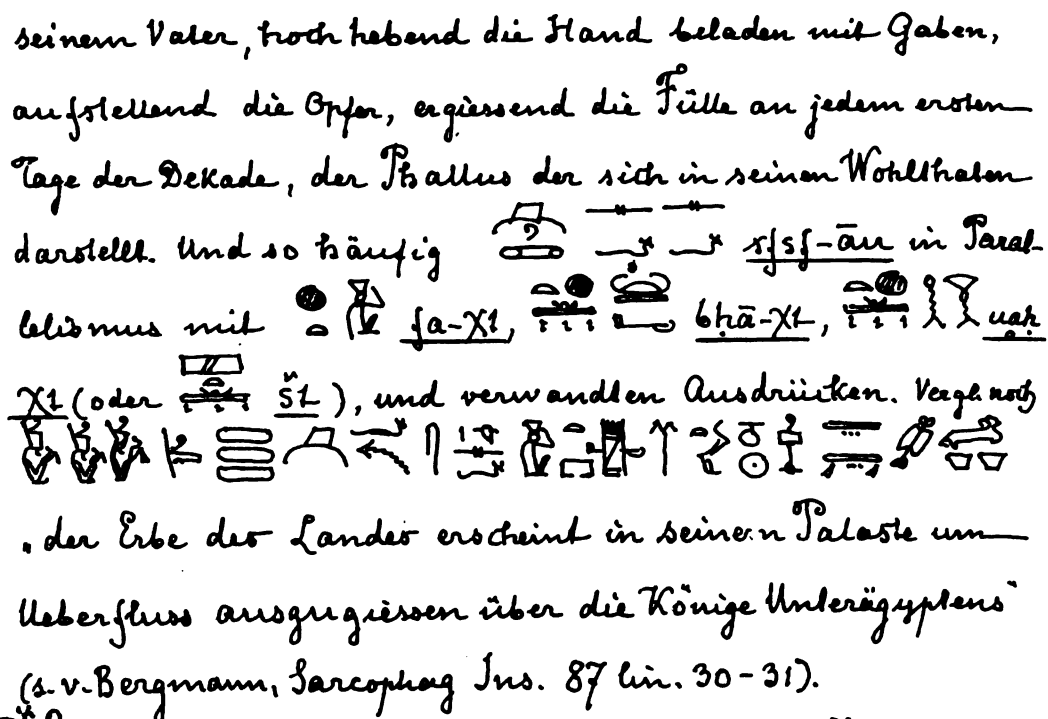 seinem Vater, hoch hebend die Hand beladen mit Gaben,
aufstellend die Opfer, ergiessend die Fülle an jedem ersten
Tage der Dekade, der Phallus der sich in seinen Wohlthaten
darstellt. Und so häufig sfsf-āu in Paral-
lelismus mit fa-χt, bḥā-χt, uaḥ
χt (oder št), und verwandten Ausdrücken. Vergl. noch
„der Erbe des Landes erscheint in seinem Palaste um
Ueberfluss auszugiessen über die Könige Unterägyptens"
(s. v. Bergmann, Sarcophag Ins. 87 lin. 30-31).